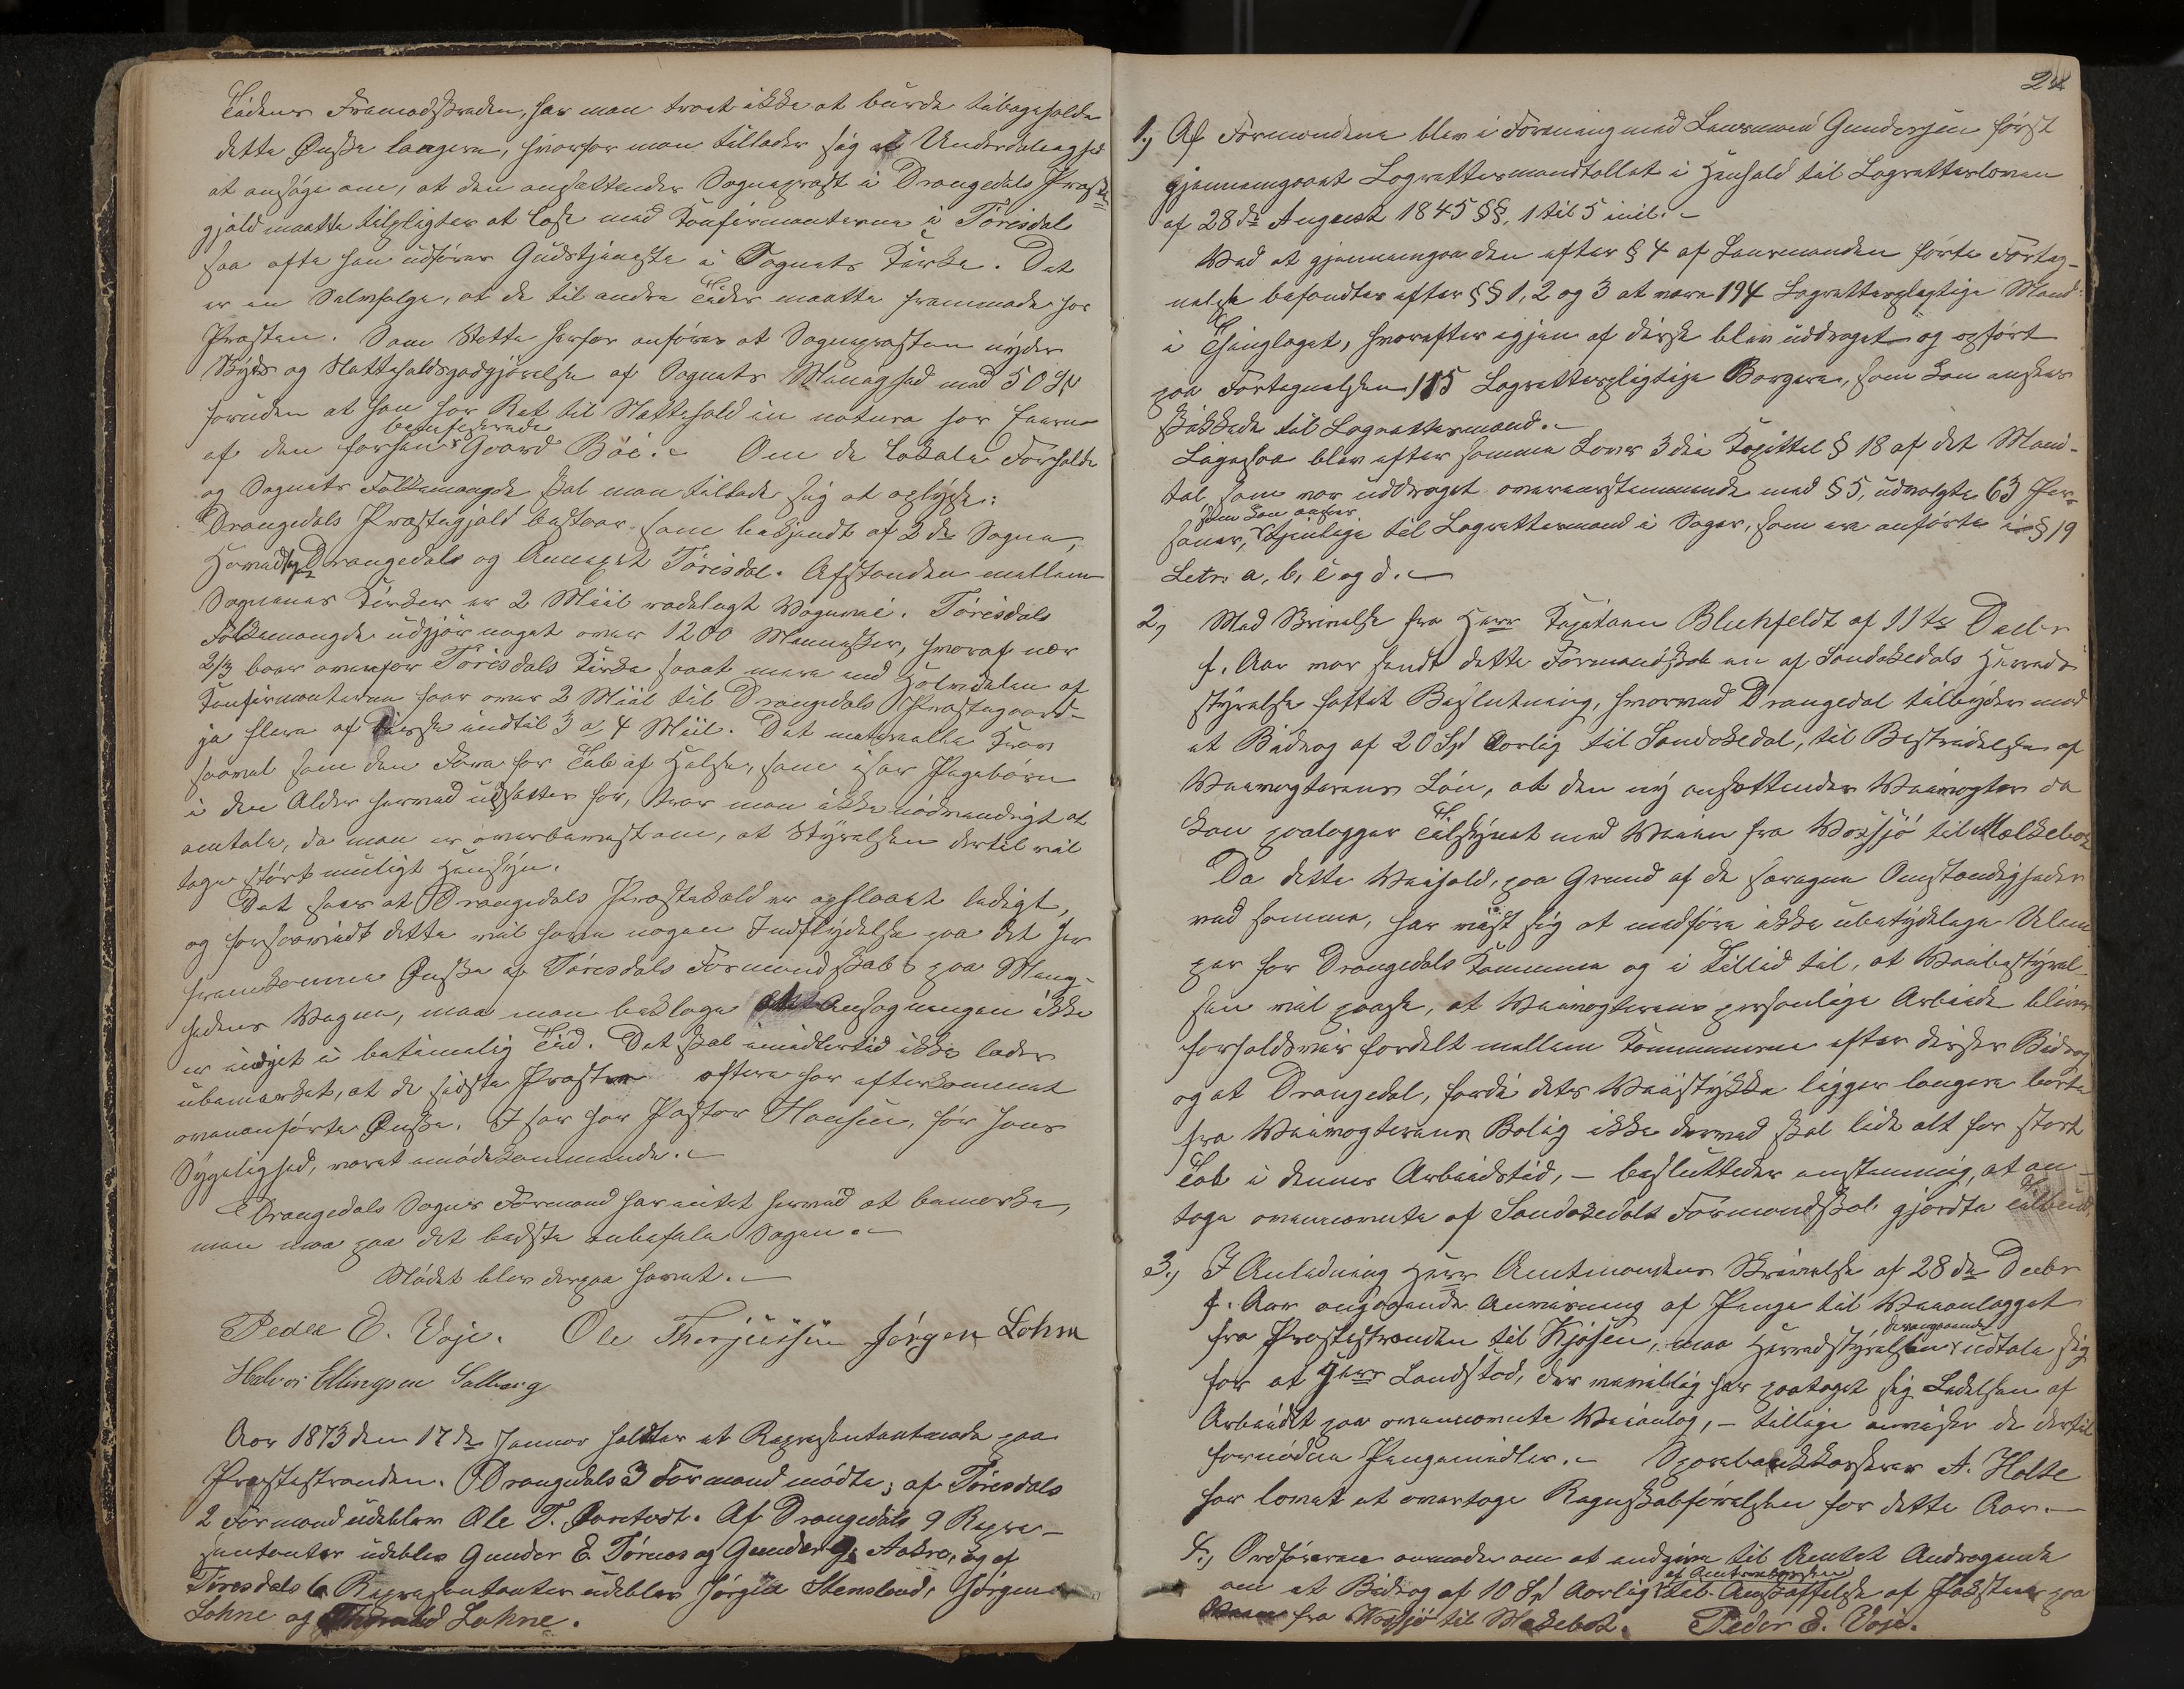 Tidens Fremadskriden, har man troet ikke at burde tilbageholde
dette Ønske længere, hvorfor man tillader sig at Underdanigst
at ansøge om, at den ansættendes Sognepræst i Drangedals Præste
gjæld maatte tilpligtes at læse med Konfirmanterne i Törisdal
saa ofte han udfører Gudstjeneste i Sognets Kirke. Det
er en Selvfølge, at de til andre Tider maatte fremmøde hos
Præsten. Som Støtte herfor anføres at Sognepræsten nyder
Skyds og Natteholdsgodtgjörelse af Sognets Menighed med 50 Spd
foruden at han har Ret til Nattehold in natura hos Eieren
af den forhen beneficerede Gaard Böe. Om de lokale Forholde
og Sognets Folkemængde skal man tillade sig at oplyse:
Drangedals Præstegjæld bestaar som bekjendt af 2de Sogne,
Hovedsogn Drangedals og Annexet Törisdal. Afstanden mellem
Sognenes Kirker er 2 Miil rodelagt Vognvei. Törisdals
Folkemængde udgjør noget over 1200 Mennesker, hvoraf nær
2/3 boer ovenfor Törisdals Kirke saaat mere end Halvdelen af
Konfirmanterne faar over 2 Miil til Drangedals Præstegaard
ja flere af disse indtil 3 a 4 Miil. Det materielle Krav
saavel som den Fare for Tab af Helse, som især Pigebörn
i den Alder herved udsættes for, troer man ikke nødvendigt at
omtale, da man er overbevist om, at Styrelsen dertil vil
tage störst muligt Hensyn.
Det sees at Drangedals Præstekald er opslaaet ledigt,
og forsaavidt dette vil have nogen Indflydelse paa det her
fremkomne Ønske af Törisdals Formandskab paa Menig-
hedens Vegne, maa man beklage at Ansøgningen ikke
er indgivet i betimelig Tid. Det skal imidlertid ikke lades
ubemærket, at de sidste Præster oftere har efterkommet
ovenanførte Ønske. Især har Pastor Hansen, før hans
Sygelighed, været imødekommende.
Drangedals Sogns Formænd har intet herved at bemærke,
men maa paa det bedste anbefale Sagen.
Mødet blev derpaa hævet.
Peder E. Voje. Ole Therjussen Jörgen Lohne
Halvor Ellingsen Solberg
Aar 1873 den 17de Januar holdtes et Repræsentantmøde paa
Præstestranden. Drangedals 3 Formænd mødte; af Törisdals
2 Formænd udeblev Ole T. . Af Drangedals 9 Repræ-
sentanter udeblev Gunder E. Törnes og Gunder G. Aakre, og af
Törisdals 6 Repræsentanter udeblev Jörgen Stensland, Jörgen
Lohne og Lohne.
24
1.) Af Formændene blev i Forening med Lensmand Gundersen først
gjennemgaaet Lagrettesmandtallet i Henhold til Lagretteloven
af 28de August 1845 §§. 1 til 5 incl.
Ved at gjennemgaa den efter § 4 af Lensmanden førte Forteg-
nelse befandtes efter §§ 1, 2 og 3 at være 194 Lagrettepligtige Mænd
i Thinglaget, hvorefter igjen af disse blev uddraget og opført
paa Fortegnelsen 115 Lagrettepligtige Borgere, som kan ansees
skikkede til Lagrettesmænd.
Ligesaa blev efter samme Lovs 3die Kapittel § 18 af det Mand-
tal, som var uddraget overeensstemmende med § 5, udvalgte 63 Per-
soner, som kan ansees tjenlige til Lagrettesmænd i Sager, som ere anførte i § 19
Letr. a, b, c og d.
2.) Med Skrivelse fra Herr Kapitaen Blichfeldt af 11te Decbr
f. Aar var sendt dette Formandskab en af Sandøkedals Herreds
styrelse fattet Beslutning, hvorved Drangedal tilbydes med
et Bidrag af 20 Spd aarlig til Sandøkedal, til Bestridelse af
Veivogterens Løn, at den ny ansættendes Veivogter da
kan paalægges Tilsynet med Veien fra Voxsjö til Mælkeboe
Da dette Veihold, paa Grund af de særegne Omstændigheder
ved samme, har viist sig at medføre ikke ubetydelige Ulem
per for Drangedals Kommune og i Tillid til, at Veibestyrel-
sen vil paase, at Veivogterens personlige Arbeide bliver
forholdsvis fordelt mellem Kommunerne efter disses Bidrag
og at Drangedal, fordi dets Veistykke ligger længere borte
fra Veivogterens Bolig ikke derved skal lide alt for stort
Tab i dennes Arbeidstid, – besluttedes enstemmig, at an-
tage ovennævnte af Sandøkedals Formandskab gjordte Tilbud.
3.) I Anledning Herr Amtmandens Skrivelse af 28de Decbr
f. Aar angaaende Anvisning af Penge til Veianlægget
fra Præstestranden til Kjösen, maa Herredstyrelsen desangaaende udtale sig
for at Herr Landstad, der velvillig har paataget sig Ledelsen af
Arbeidet paa ovennævnte Veianlæg, – tillige anviser de dertil
fornødne Pengemidler. Sparebankkasserer A. Holte
har lovet at overtage Regnskabførelsen for dette Aar.
4.) Ordføreren anmodes om at indgive til Amtet Andragende
om et Bidrag af 10 Spd Aarlig til Anskaffelse af paa
Veien fra Voxsjö til Mælkeboe. Peder E. Voje.